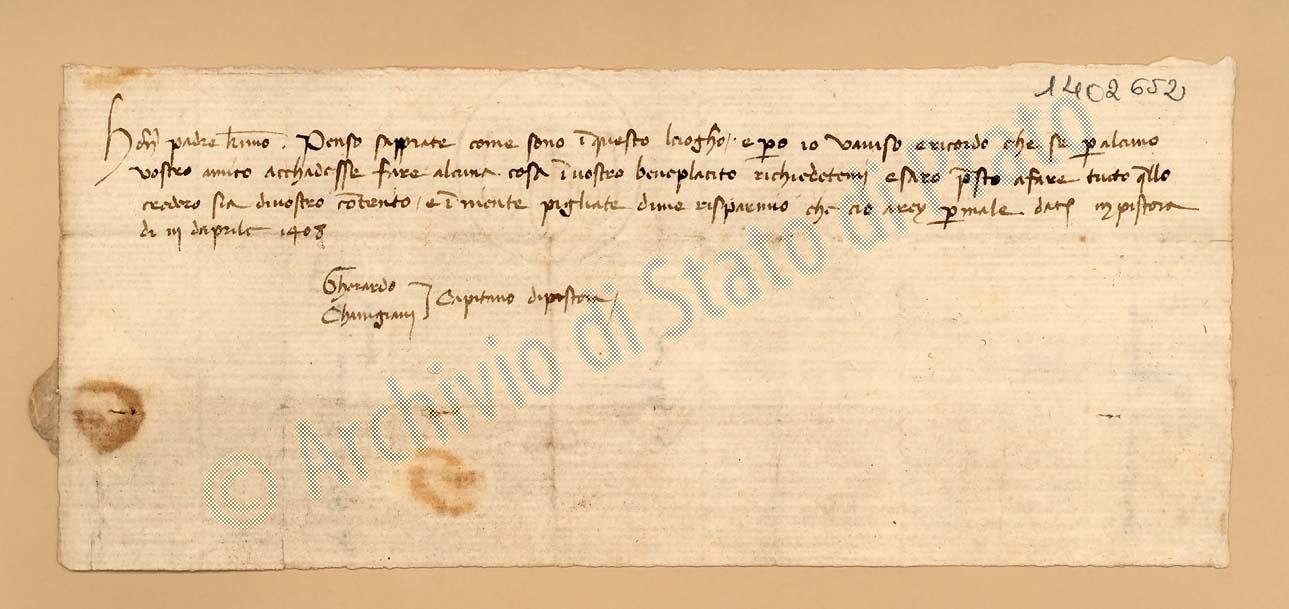 1402652
Hon̄ padre h̄nno. Penso sappiate come sono ī questo luogho, e po io vaviso e ricordo che se p alcuno
vostro amico acchadesse fare alcuna cosa ī vostro beneplacito richiedetemi e saro p̄sto a fare tucto q̄llo
credero sia di vostro cōtento, e ī niente pigliate di me risparmio che cio arey p male. dat in pistoia
di iii daprile 1408
Gherardo
Chanigiani ] Capitano di pistoia,
© Archivio di Stato di Prato